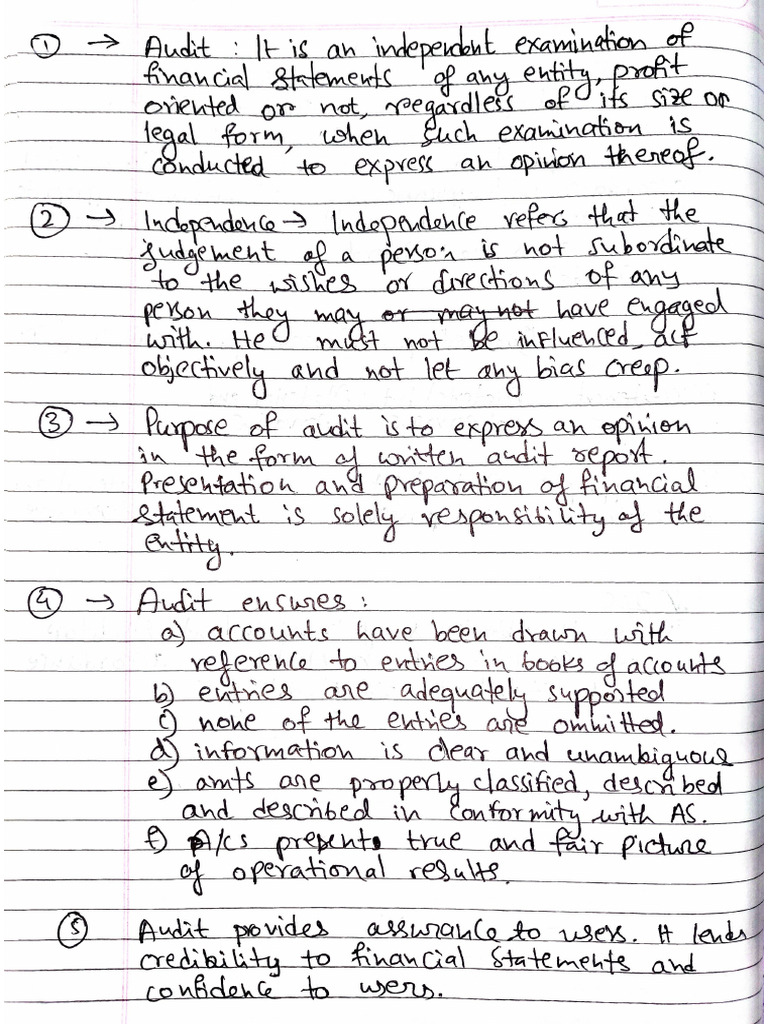 ① → Audit : It is an independent examination of
financial statements of any entity, profit
oriented or not, regardless of its size or
legal form, when such examination is
conducted to express an opinion thereof.
② → Independence → Independence refers that the
judgement of a person is not subordinate
to the wishes or directions of any
person they may or may not have engaged
with. He must not be influenced, act
objectively and not let any bias creep.
③ → Purpose of audit is to express an opinion
in the form of written audit report.
Presentation and preparation of financial
statement is solely responsibility of the
entity.
④ → Audit ensures :
a) accounts have been drawn with
reference to entries in books of accounts
b) entries are adequately supported
c) none of the entries are ommitted.
d) information is clear and unambiguous
e) amts are properly classified, described
and described in conformity with AS.
f) A/cs present true and fair picture
of operational results.
⑤ Audit provides assurance to users. It lends
credibility to financial statements and
confidence to users.